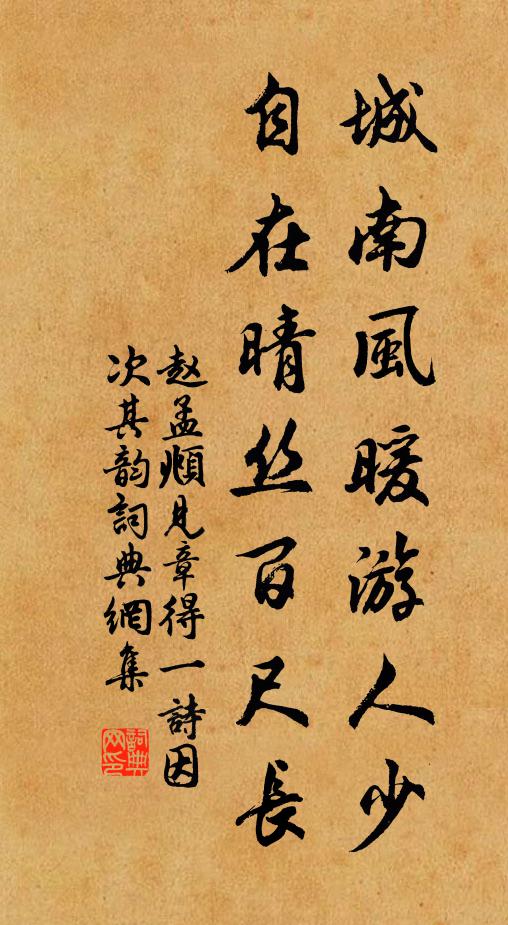 城南風暖游人少
自在晴丝百尺長
赵孟頫見章得一詩因
次其韵詞典網集
詞典網印